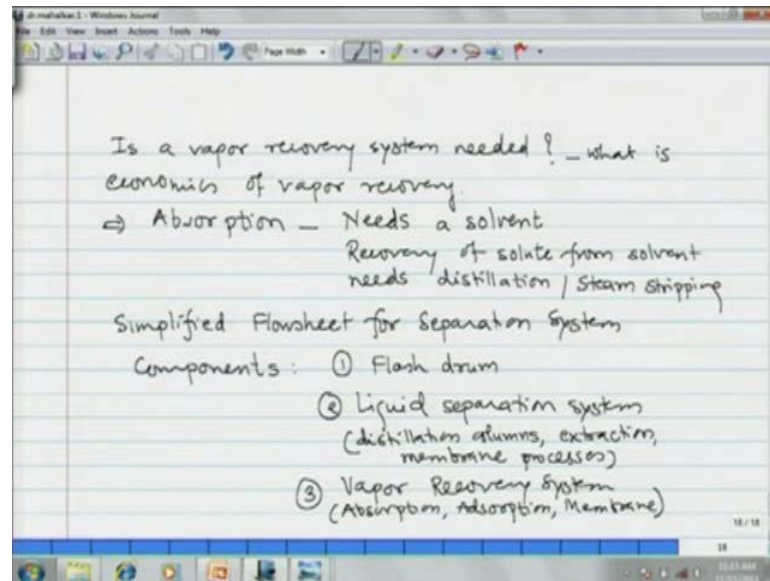 dr.mahalkar.1 - Windows Journal
File Edit View Insert Actions Tools Help
Page Width
Is a vapor recovery system needed? - what is
economics of vapor recovery.
⇒ Absorption - Needs a solvent
Recovery of solute from solvent
needs distillation / Steam stripping
Simplified Flowsheet for Separation System
Components: ① Flash drum
② Liquid separation system
(distillation columns, extraction,
membrane processes)
③ Vapor Recovery System
(Absorption, Adsorption, Membrane)
18 / 18
18